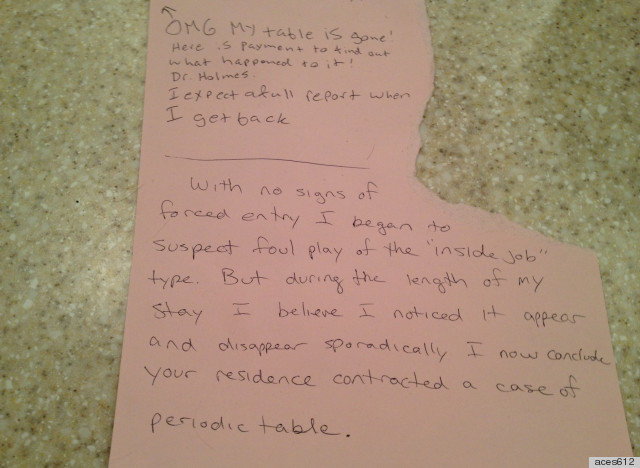 OMG My table is gone!
Here is payment to find out
what happened to it!
Dr. Holmes.
I expect a full report when
I get back
With no signs of
forced entry I began to
suspect foul play of the "inside job"
type. But during the length of my
stay I believe I noticed it appear
and disappear sporadically I now conclude
your residence contracted a case of
periodic table.
aces612